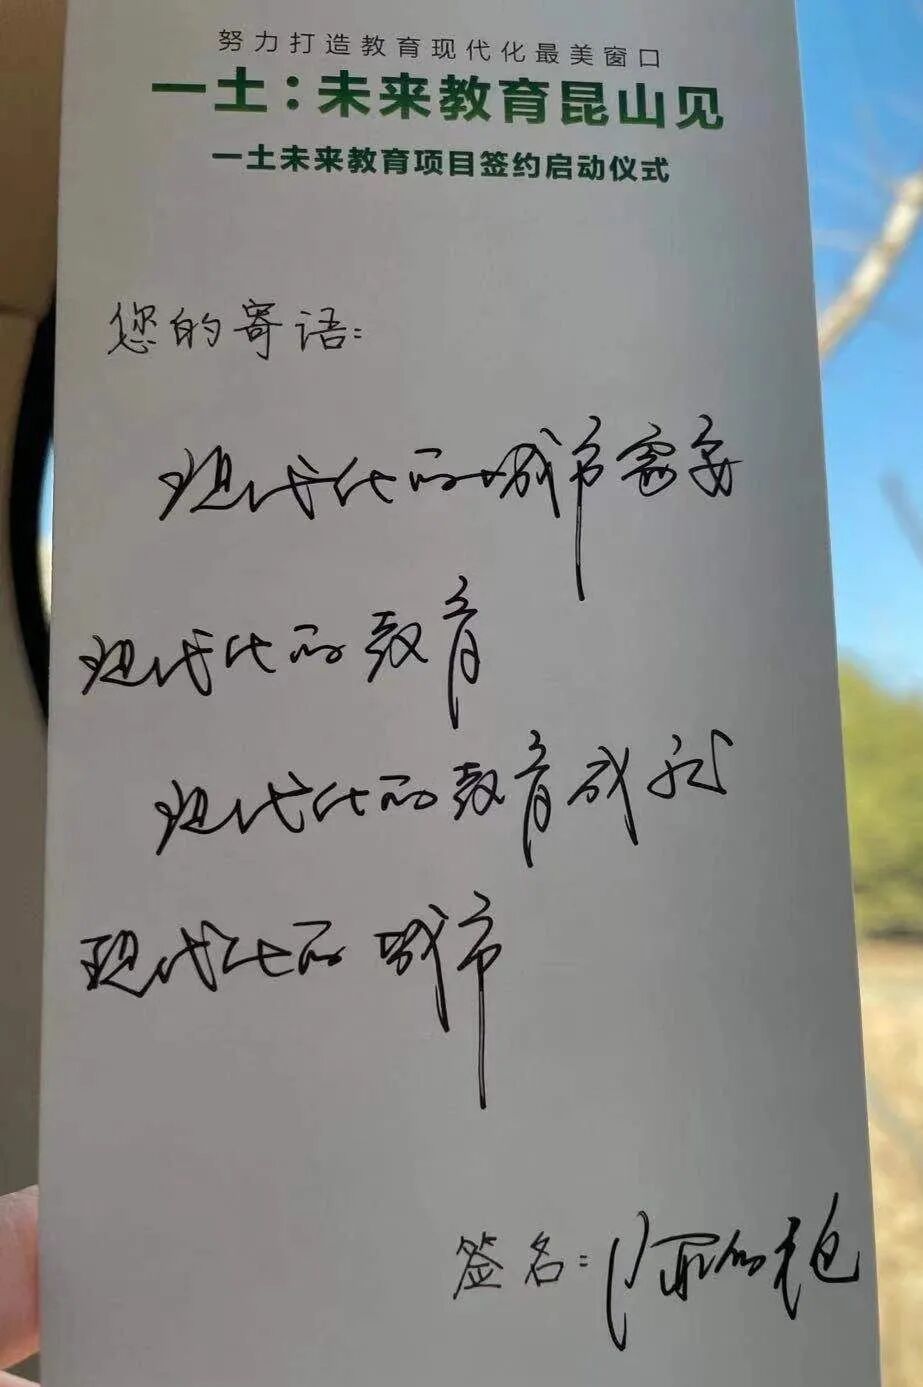 努力打造教育现代化最美窗口
一土:未来教育昆山见
一土未来教育项目签约启动仪式
您的寄语:
现代化的城市需要
现代化的教育
现代化的教育成就
现代化的城市
签名: